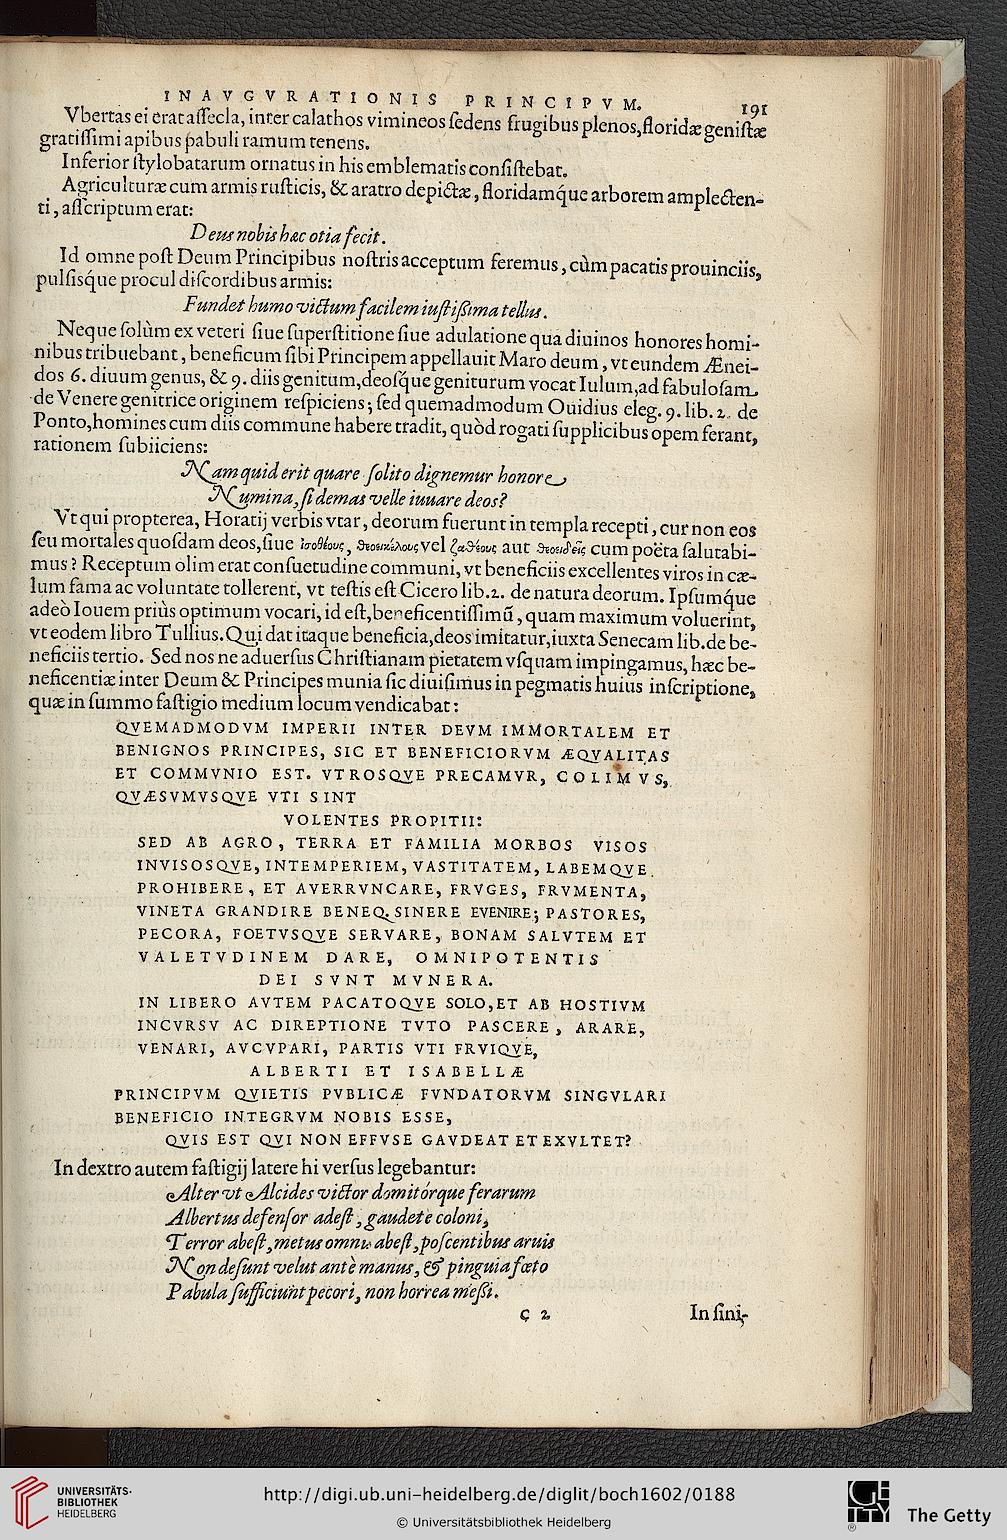 INAVGVRATIONIS PRINCIPVM. 191
Vbertas ei erat assecla, inter calathos vimineos sedens frugibus plenos, floridæ genistæ
gratissimi apibus pabuli ramum tenens.
Inferior stylobatarum ornatus in his emblematis consistebat.
Agriculturæ cum armis rusticis, & aratro depictæ, floridamq́ue arborem amplecten-
ti, asscriptum erat:
Deus nobis hæc otia fecit.
Id omne post Deum Principibus nostris acceptum feremus, cùm pacatis prouinciis,
pulsisq́ue procul discordibus armis:
Fundet humo victum facilem iustissima tellus.
Neque solùm ex veteri siue superstitione siue adulatione qua diuinos honores homi-
nibus tribuebant, beneficum sibi Principem appellauit Maro deum, vt eundem Ænei-
dos 6. diuum genus, & 9. diis genitum, deosq́ue geniturum vocat Iulum, ad fabulosam
de Venere genitrice originem respiciens; sed quemadmodum Ouidius eleg. 9. lib. 2. de
Ponto, homines cum diis commune habere tradit, quòd rogati supplicibus opem ferant,
rationem subiiciens:
Nam quid erit quare solito dignemur honore
Numina, si demas velle iuuare deos?
Vt qui propterea, Horatij verbis vtar, deorum fuerunt in templa recepti, cur non eos
seu mortales quosdam deos, siue ἰσοθέους, θεοεικέλους vel ζαθέους aut θεοειδεῖς cum poëta salutabi-
mus? Receptum olim erat consuetudine communi, vt beneficiis excellentes viros in cæ-
lum fama ac voluntate tollerent, vt testis est Cicero lib. 2. de natura deorum. Ipsumq́ue
adeò Iouem priùs optimum vocari, id est, beneficentissimũ, quam maximum voluerint,
vt eodem libro Tullius. Qui dat itaque beneficia, deos imitatur, iuxta Senecam lib. de be-
neficiis tertio. Sed nos ne aduersus Christianam pietatem vsquam impingamus, hæc be-
neficentiæ inter Deum & Principes munia sic diuisimus in pegmatis huius inscriptione,
quæ in summo fastigio medium locum vendicabat:
QVEMADMODVM IMPERII INTER DEVM IMMORTALEM ET
BENIGNOS PRINCIPES, SIC ET BENEFICIORVM ÆQVALITAS
ET COMMVNIO EST. VTROSQVE PRECAMVR, COLIMVS,
QVÆSVMVSQVE VTI SINT
VOLENTES PROPITII:
SED AB AGRO, TERRA ET FAMILIA MORBOS VISOS
INVISOSQVE, INTEMPERIEM, VASTITATEM, LABEMQVE
PROHIBERE, ET AVERRVNCARE, FRVGES, FRVMENTA,
VINETA GRANDIRE BENEQ. SINERE EVENIRE; PASTORES,
PECORA, FOETVSQVE SERVARE, BONAM SALVTEM ET
VALETVDINEM DARE, OMNIPOTENTIS
DEI SVNT MVNERA.
IN LIBERO AVTEM PACATOQVE SOLO, ET AB HOSTIVM
INCVRSV AC DIREPTIONE TVTO PASCERE, ARARE,
VENARI, AVCVPARI, PARTIS VTI FRVIQVE,
ALBERTI ET ISABELLÆ
PRINCIPVM QVIETIS PVBLICÆ FVNDATORVM SINGVLARI
BENEFICIO INTEGRVM NOBIS ESSE,
QVIS EST QVI NON EFFVSE GAVDEAT ET EXVLTET?
In dextro autem fastigij latere hi versus legebantur:
Alter vt Alcides victor domitórque ferarum
Albertus defensor adest, gaudete coloni,
Terror abest, metus omnis abest, poscentibus aruis
Non desunt velut antè manus, & pinguia fœto
Pabula sufficiunt pecori, non horrea messi.
ç 2 In sini-
UNIVERSITÄTS-
BIBLIOTHEK
HEIDELBERG
http://digi.ub.uni-heidelberg.de/diglit/boch1602/0188
© Universitätsbibliothek Heidelberg
GETTY
The Getty